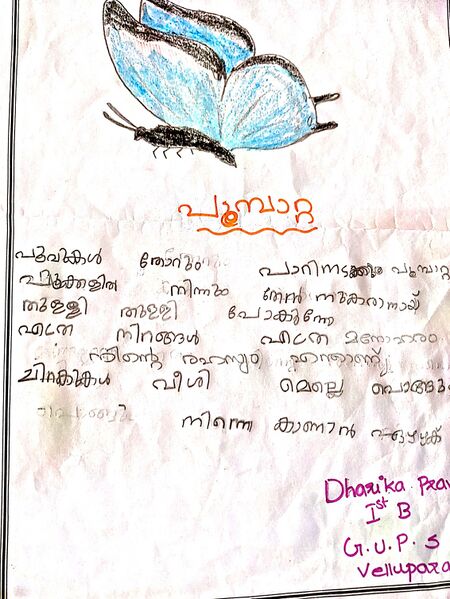 പൂമ്പാറ്റ
പൂവുകൾ തോറും പാറിനടക്കും പൂമ്പാറ്റ
പൂക്കളിൽ നിന്നും തേൻ നുകരാനായ്
തുള്ളി തുള്ളി പോകുന്നേ
എത്ര നിറങ്ങൾ എത്ര മനോഹരം
നിന്റെ രഹസ്യം എന്താണ്
ചിറകുകൾ വീശി മെല്ലെ പൊങ്ങും
നിന്നെ കാണാൻ
Dharika Prav
Ist B
G.U.P.S
Vellupara